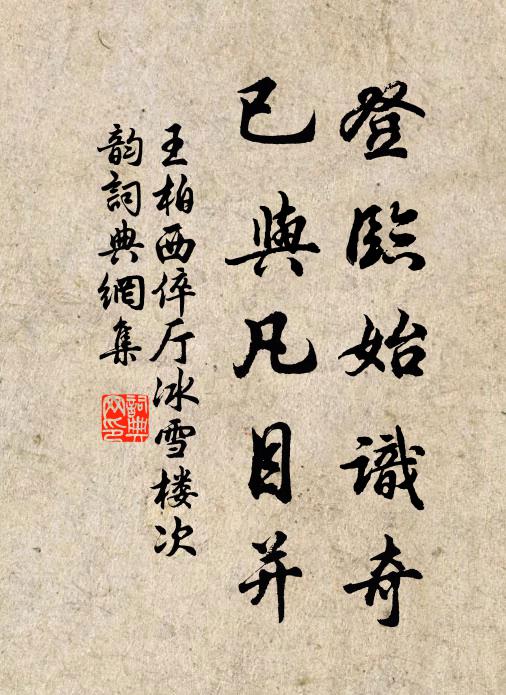 登臨始識奇
已與凡目并
王柏西倅厅冰雪楼次
韵詞典網集
詞典網印